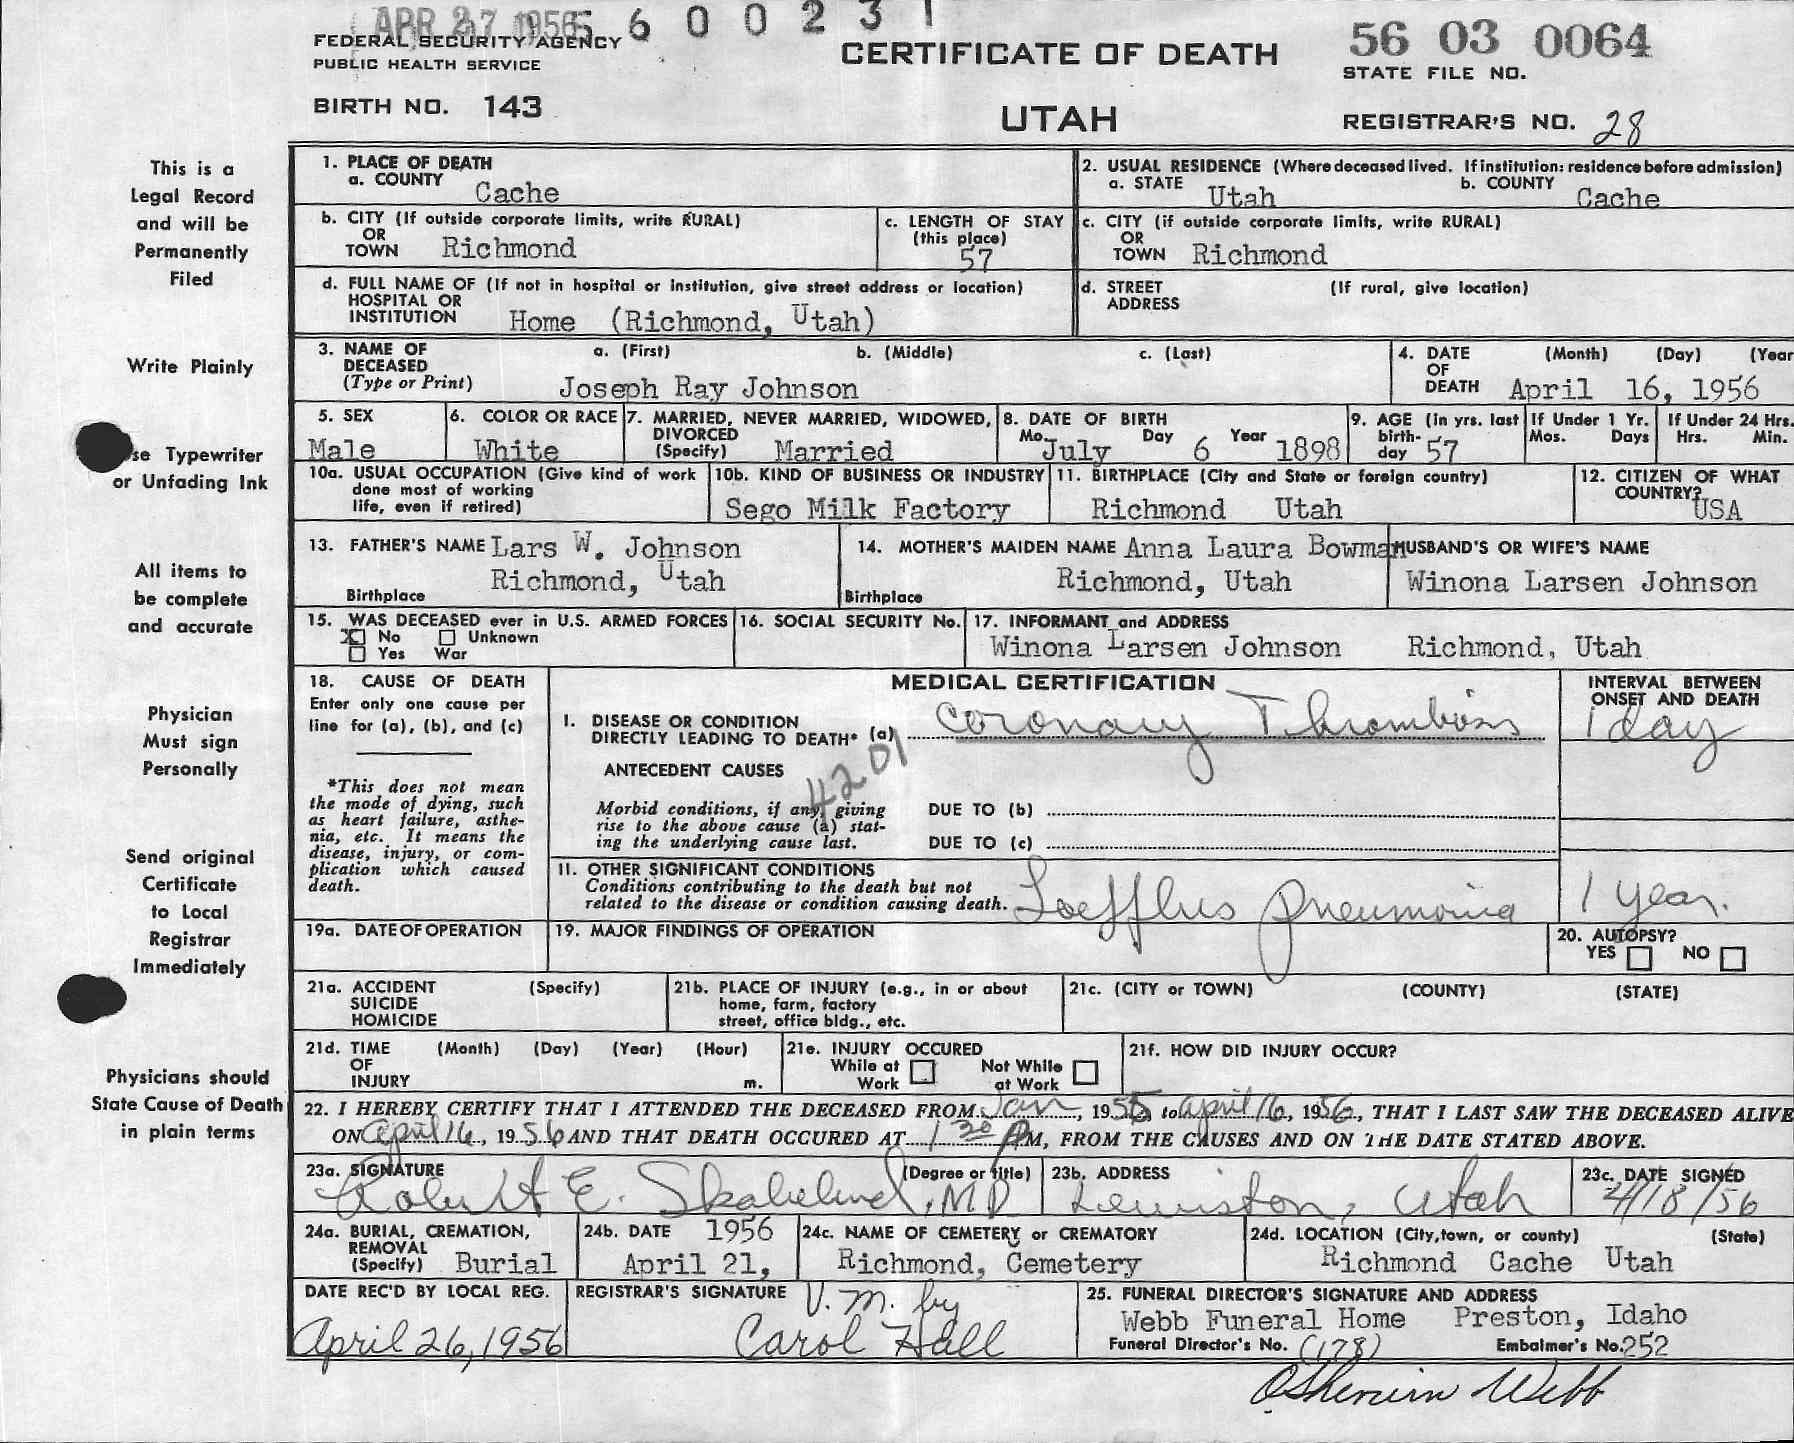 APR 27 1956 5 6 0 0 2 3 1
FEDERAL SECURITY AGENCY
PUBLIC HEALTH SERVICE
BIRTH NO. 143
CERTIFICATE OF DEATH
UTAH
56 03 0064
STATE FILE NO.
REGISTRAR'S NO. 28
This is a
Legal Record
and will be
Permanently
Filed
Write Plainly
se Typewriter
or Unfading Ink
All items to
be complete
and accurate
Physician
Must sign
Personally
Send original
Certificate
to Local
Registrar
Immediately
Physicians should
State Cause of Death
in plain terms
1. PLACE OF DEATH
a. COUNTY Cache
2. USUAL RESIDENCE (Where deceased lived. If institution: residence before admission)
a. STATE Utah b. COUNTY Cache
b. CITY (If outside corporate limits, write RURAL)
OR
TOWN Richmond
c. LENGTH OF STAY
(this place)
57
c. CITY (if outside corporate limits, write RURAL)
OR
TOWN Richmond
d. FULL NAME OF (If not in hospital or institution, give street address or location)
HOSPITAL OR
INSTITUTION Home (Richmond, Utah)
d. STREET (If rural, give location)
ADDRESS
3. NAME OF a. (First) b. (Middle) c. (Last)
DECEASED
(Type or Print) Joseph Ray Johnson
4. DATE (Month) (Day) (Year
OF
DEATH April 16, 1956
5. SEX
Male
6. COLOR OR RACE
White
7. MARRIED, NEVER MARRIED, WIDOWED,
DIVORCED
(Specify) Married
8. DATE OF BIRTH
Mo. July Day 6 Year 1898
9. AGE (in yrs. last
birth-
day 57
If Under 1 Yr.
Mos. Days
If Under 24 Hrs.
Hrs. Min.
10a. USUAL OCCUPATION (Give kind of work
done most of working
life, even if retired)
10b. KIND OF BUSINESS OR INDUSTRY
Sego Milk Factory
11. BIRTHPLACE (City and State or foreign country)
Richmond Utah
12. CITIZEN OF WHAT
COUNTRY?
USA
13. FATHER'S NAME Lars W. Johnson
Richmond, Utah
Birthplace
14. MOTHER'S MAIDEN NAME Anna Laura Bowman
Richmond, Utah
Birthplace
HUSBAND'S OR WIFE'S NAME
Winona Larsen Johnson
15. WAS DECEASED ever in U.S. ARMED FORCES
X No Unknown
Yes War
16. SOCIAL SECURITY No.
17. INFORMANT and ADDRESS
Winona Larsen Johnson Richmond, Utah
18. CAUSE OF DEATH
Enter only one cause per
line for (a), (b), and (c)
*This does not mean
the mode of dying, such
as heart failure, asthe-
nia, etc. It means the
disease, injury, or com-
plication which caused
death.
MEDICAL CERTIFICATION
INTERVAL BETWEEN
ONSET AND DEATH
I. DISEASE OR CONDITION
DIRECTLY LEADING TO DEATH* (a) Coronary Thrombosis 1 day
ANTECEDENT CAUSES
4201
Morbid conditions, if any, giving
rise to the above cause (a) stat-
ing the underlying cause last.
DUE TO (b)
DUE TO (c)
11. OTHER SIGNIFICANT CONDITIONS
Conditions contributing to the death but not
related to the disease or condition causing death.
Loefflus Pneumonia 1 year.
19a. DATE OF OPERATION
19. MAJOR FINDINGS OF OPERATION
20. AUTOPSY?
YES NO
21a. ACCIDENT (Specify)
SUICIDE
HOMICIDE
21b. PLACE OF INJURY (e.g., in or about
home, farm, factory
street, office bldg., etc.
21c. (CITY or TOWN) (COUNTY) (STATE)
21d. TIME (Month) (Day) (Year) (Hour)
OF
INJURY m.
21e. INJURY OCCURED
While at Not While
Work at Work
21f. HOW DID INJURY OCCUR?
22. I HEREBY CERTIFY THAT I ATTENDED THE DECEASED FROM Jan, 1955 to April 16, 1956, THAT I LAST SAW THE DECEASED ALIVE
ON April 16, 1956 AND THAT DEATH OCCURED AT 1 30 PM, FROM THE CAUSES AND ON THE DATE STATED ABOVE.
23a. SIGNATURE (Degree or title)
Robert E. Skabelund, MD
23b. ADDRESS
Lewiston, Utah
23c. DATE SIGNED
4/18/56
24a. BURIAL, CREMATION,
REMOVAL
(Specify) Burial
24b. DATE 1956
April 21,
24c. NAME OF CEMETERY or CREMATORY
Richmond, Cemetery
24d. LOCATION (City, town, or county) (State)
Richmond Cache Utah
DATE REC'D BY LOCAL REG.
April 26, 1956
REGISTRAR'S SIGNATURE V. M. by
Carol Hall
25. FUNERAL DIRECTOR'S SIGNATURE AND ADDRESS
Webb Funeral Home Preston, Idaho
Funeral Director's No. (178) Embalmer's No. 252
Webb